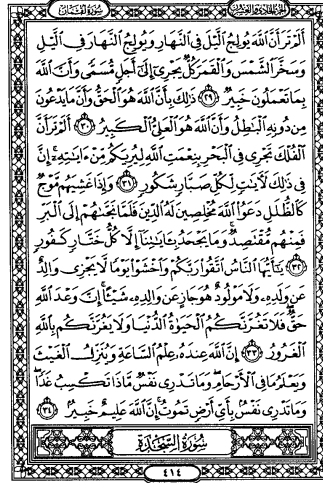 سورة لقمان الجزء الحادي والعشرون
ألم تر أن الله يولج اليل في النهار ويولج النهار في اليل
وسخر الشمس والقمر كل يجري إلى أجل مسمى وأن الله
بما تعملون خبير ٢٩ ذلك بأن الله هو الحق وأن ما يدعون
من دونه البطل وأن الله هو العلي الكبير ٣٠ ألم تر أن
الفلك تجري في البحر بنعمت الله ليريكم من ءايته إن
في ذلك لأيت لكل صبار شكور ٣١ وإذا غشيهم موج
كالظلل دعوا الله مخلصين له الدين فلما نجىهم إلى البر
فمنهم مقتصد وما يجحد بـٔايتنا إلا كل ختار كفور
٣٢ يأيها الناس اتقوا ربكم واخشوا يوما لا يجزي والد
عن ولده ولا مولود هو جاز عن والده شيـٔا إن وعد الله
حق فلا تغرنكم الحيوة الدنيا ولا يغرنكم بالله
الغرور ٣٣ إن الله عنده علم الساعة وينزل الغيث
ويعلم ما في الأرحام وما تدري نفس ماذا تكسب غدا
وما تدري نفس بأي أرض تموت إن الله عليم خبير ٣٤
سورة السجدة
٤١٤